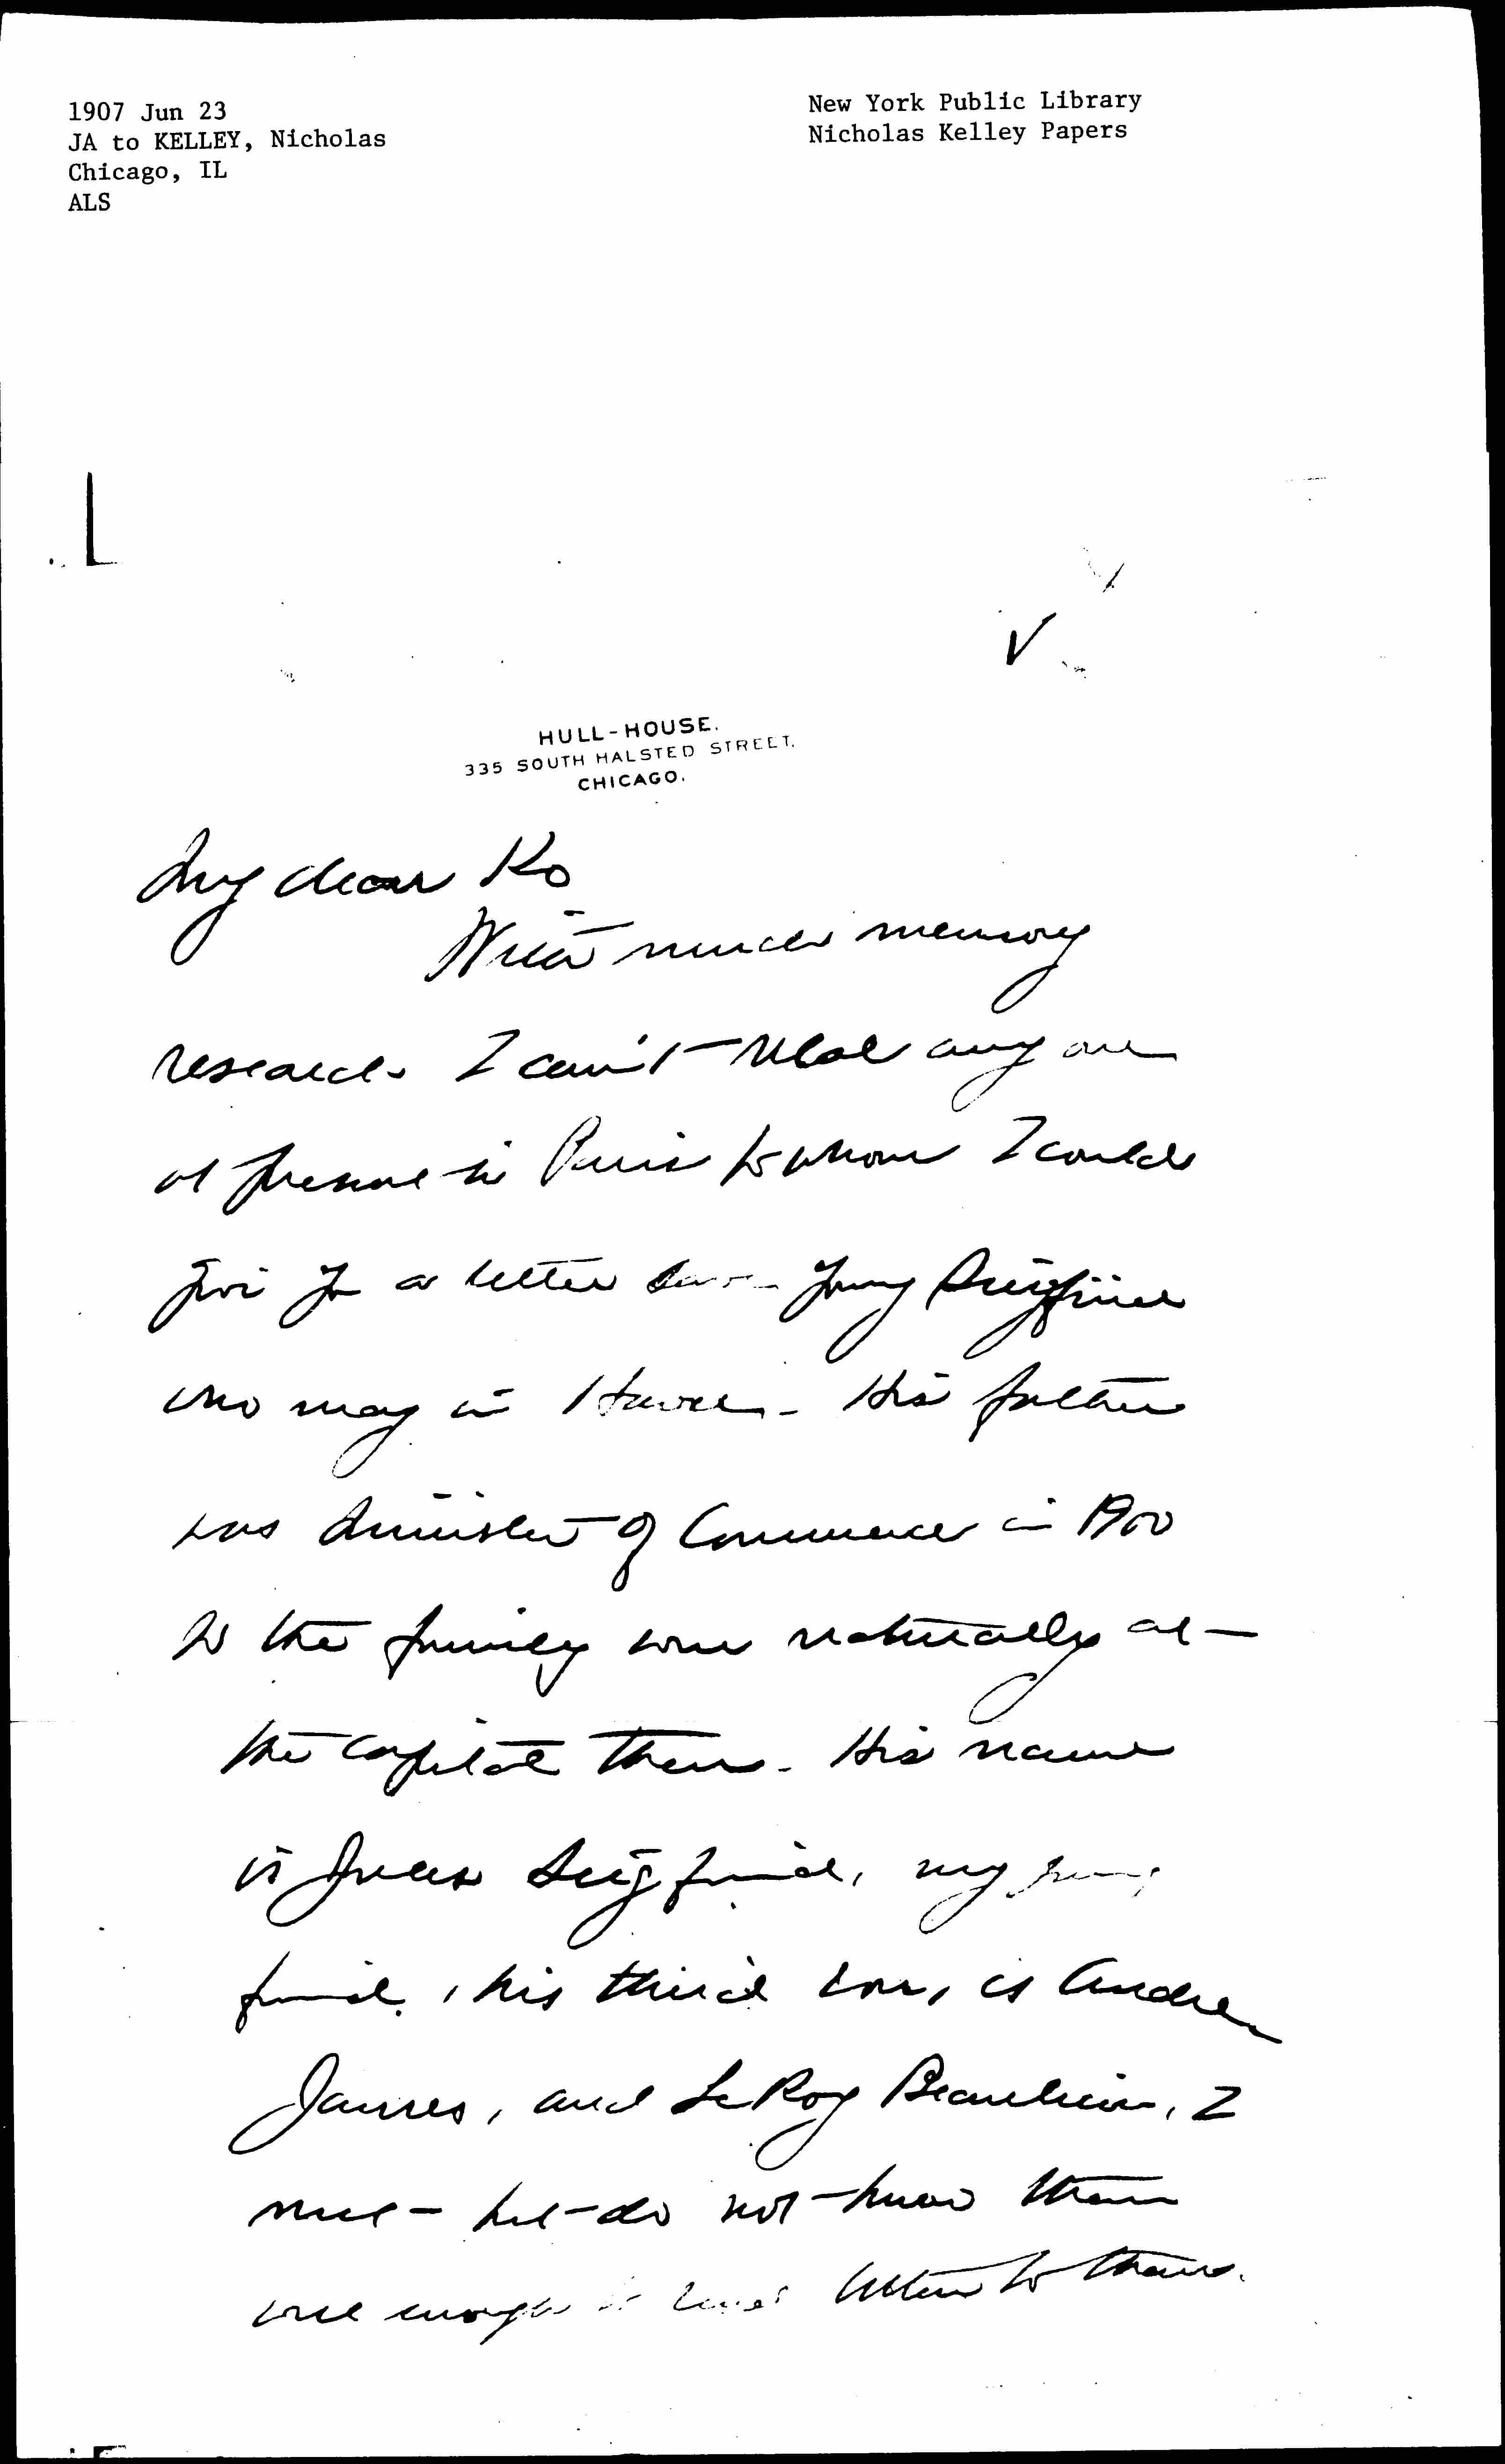 1907 Jun 23
JA to KELLEY, Nicholas
Chicago, IL
ALS
New York Public Library
Nicholas Kelley Papers
HULL-HOUSE.
335 SOUTH HALSTED STREET.
CHICAGO.
My dear Ko
With much memory
research I can't recall any one
at present in Paris to whom I could
give you a letter save young Siegfried
who may in Havre - His father
was Minister of Commerce in 1900
so the family were naturally at
the capital then - His name
is Jules Siegfried, my young
friend, his third son, is André
Jaures, and Le Roy Beaulieu, I
met - but do not know them
well enough to letter to them.